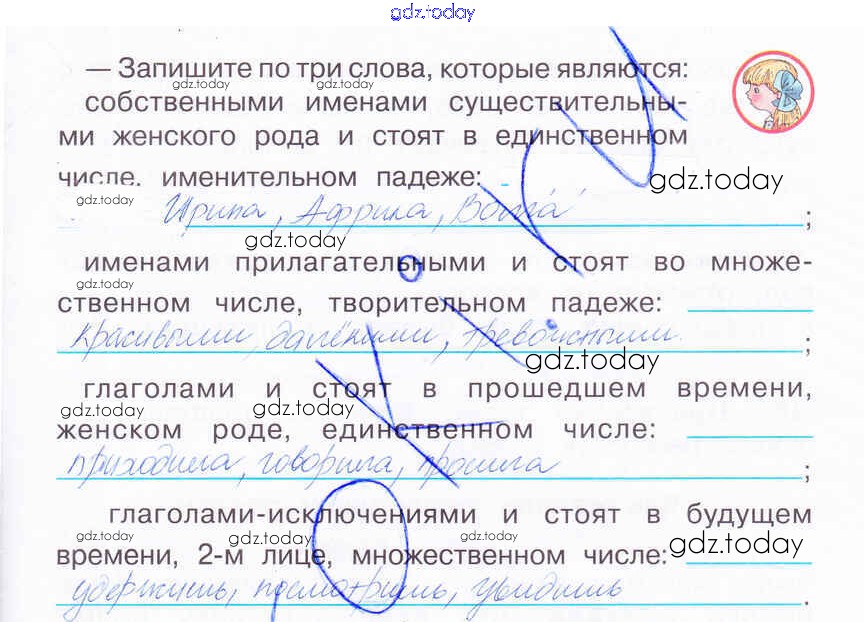 gdz.today
— Запишите по три слова, которые являются:
gdz.today gdz.today
собственными именами существительны-
ми женского рода и стоят в единственном
числе, именительном падеже:
gdz.today
gdz.today
Ирина, Африка, Волга ;
gdz.today
именами прилагательными и стоят во множе-
gdz.today
ственном числе, творительном падеже:
красивыми, далёкими, тревожными. ;
gdz.today
глаголами и стоят в прошедшем времени,
gdz.today gdz.today
женском роде, единственном числе:
приходила, говорила, просила ;
глаголами-исключениями и стоят в будущем
gdz.today gdz.today gdz.today gdz.today
времени, 2-м лице, множественном числе:
удержишь, посмотришь, увидишь .